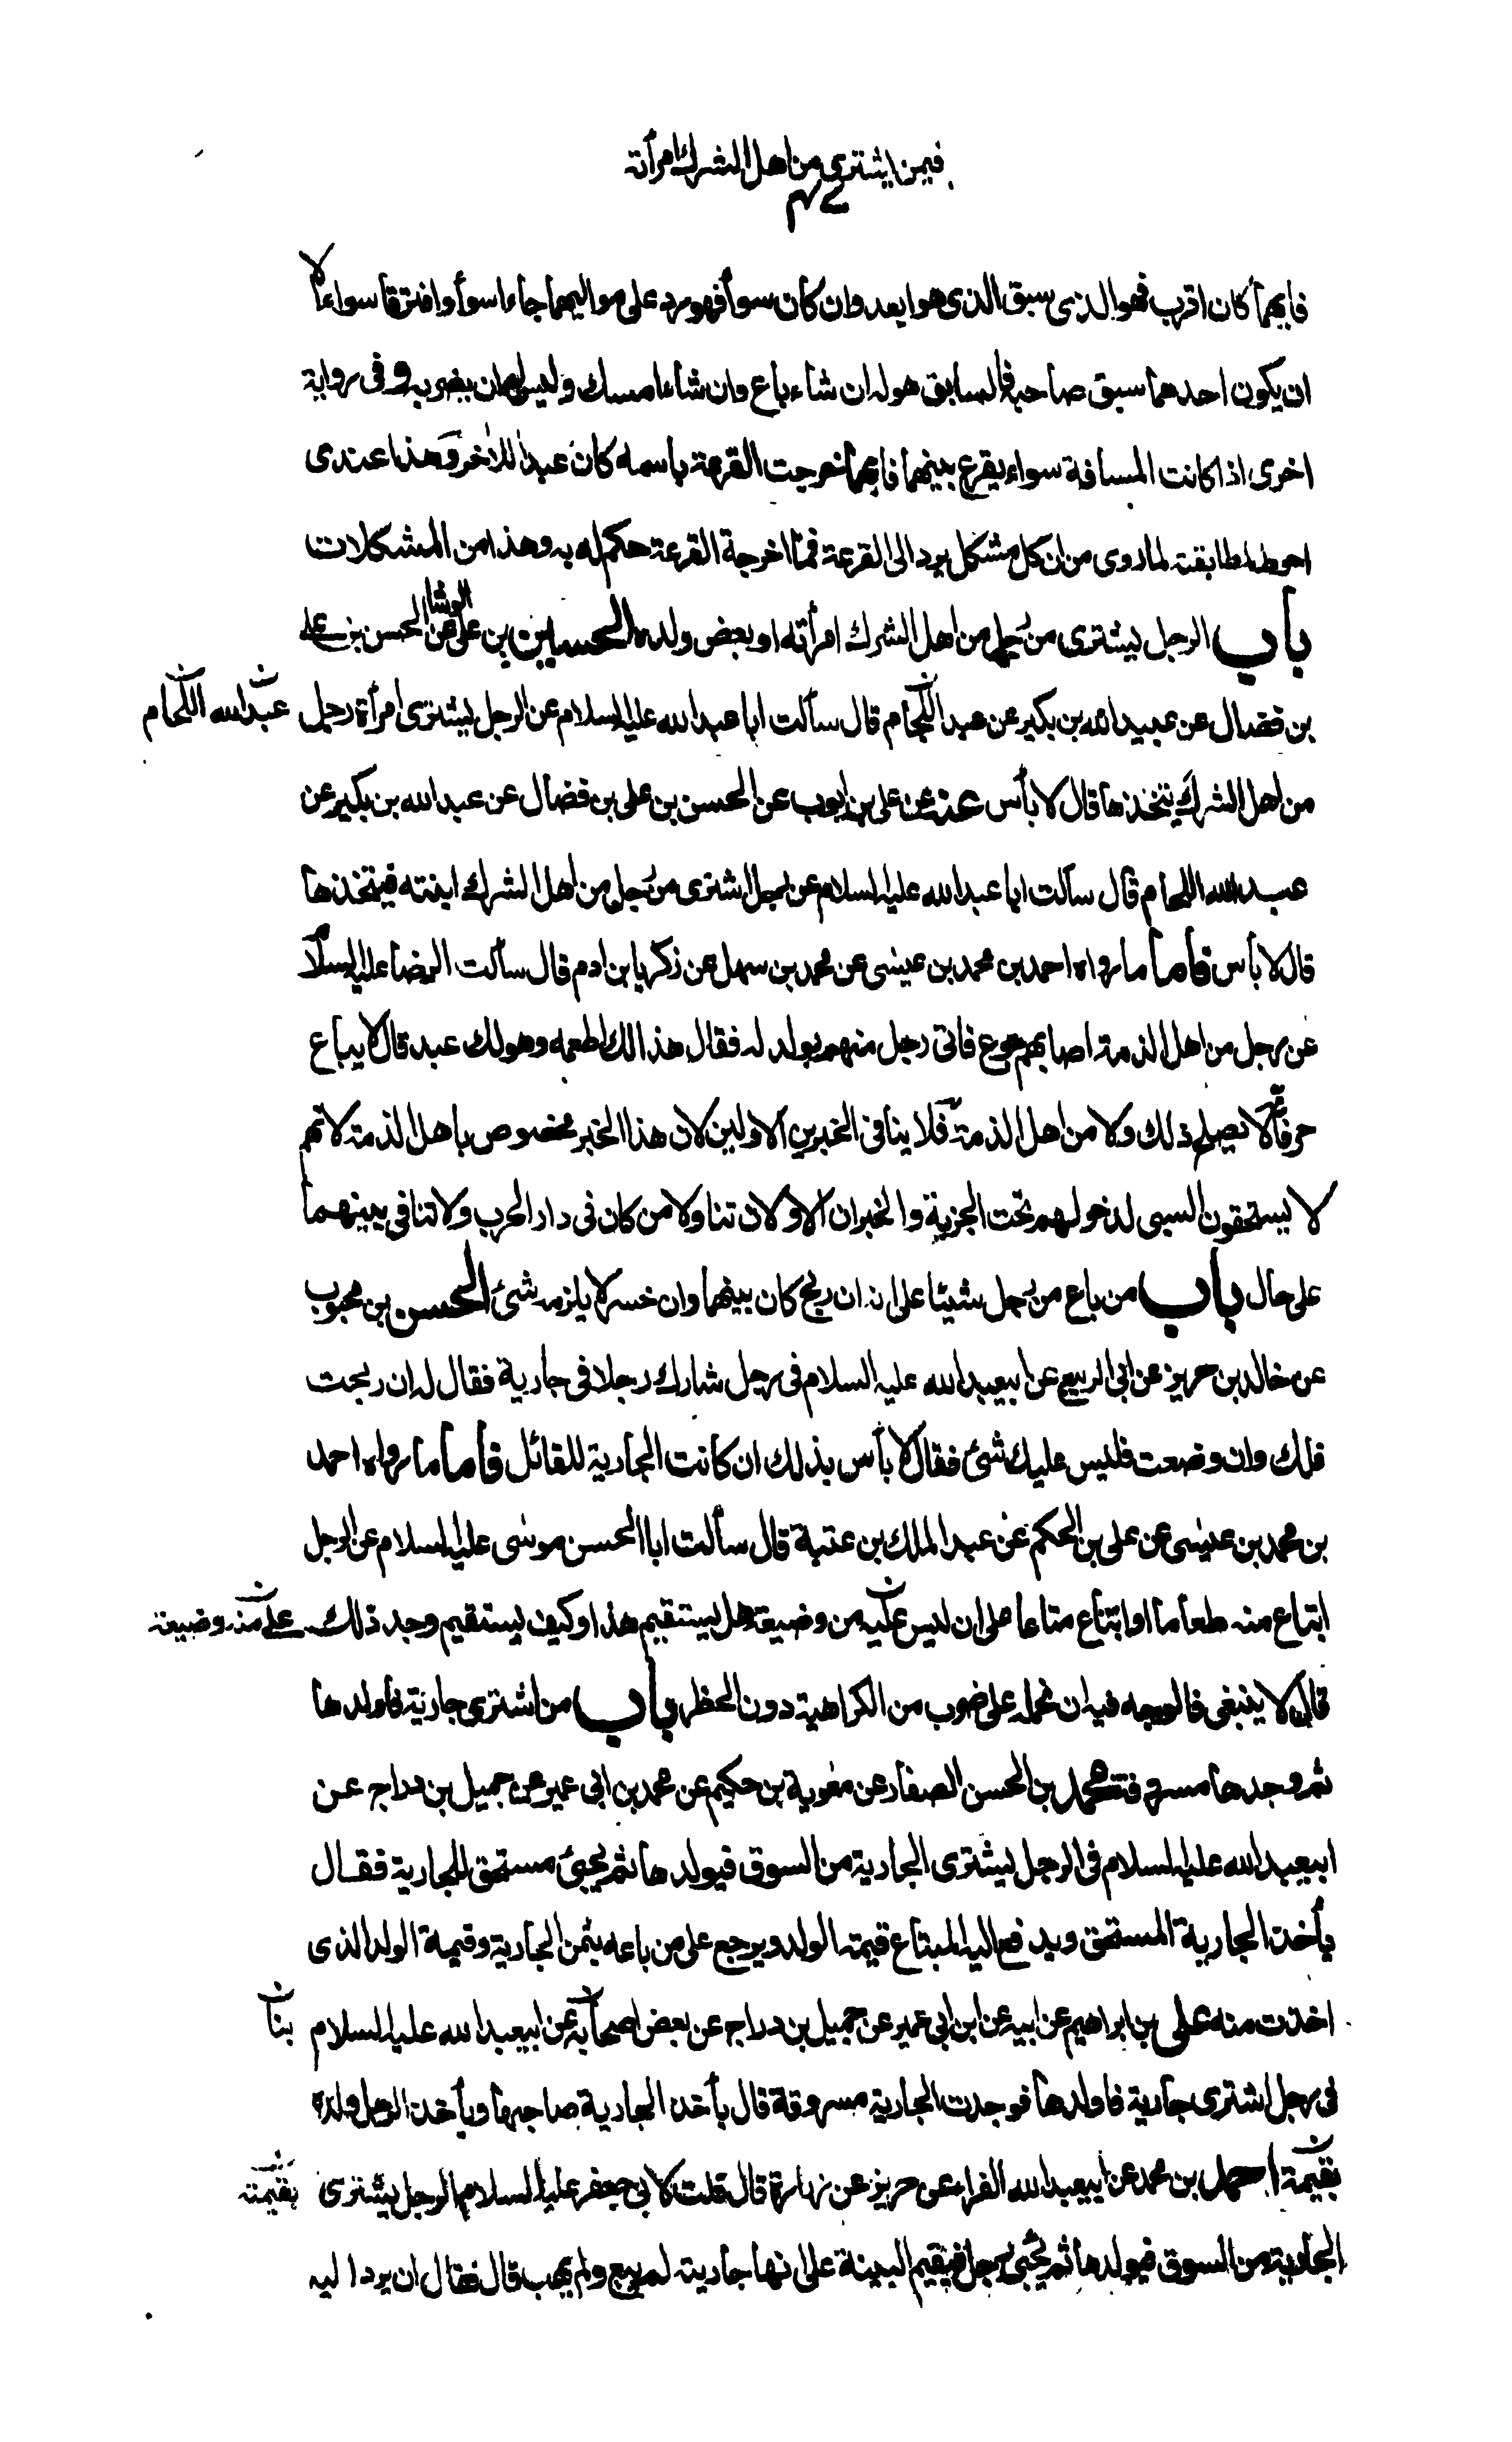 فيمن يشترى من اهل الشرك امرأته
فايهما كان اقرب فهو الذى سبق الذى هو ابعد وان كان سوأ فهو رد على مواليهما جاءا سوأ وافترقا سواء الا
ان يكون احدهما سبق صاحبه فالسابق هو له ان شاء باع وان شاء امسك وليس له ان يضر به وفى رواية
اخرى اذا كانت المسافة سواء يقرع بينهما فايهما خرجت القرعة باسمه كان عبدا للاخر وهذا عندى
احوط لمطابقته لما روى من ان كل مشكل يرد الى القرعة فما اخرجة القرعة حكم له به وهذا من المشكلات
باب الرجل يشترى من رجل من اهل الشرك امرأته او بعض ولده الحسين بن على الوشا عن الحسن بن على
بن فضال عن عبيد الله بن بكير عن عبد اللحام قال سألت ابا عبد الله عليه السلام عن الرجل يشترى امرأة رجل
عبد الله اللحام
من اهل الشرك يتخذها قال لا بأس عنه عن على بن ايوب عن الحسن بن على بن فضال عن عبد الله بن بكير عن
عبد الله اللحام قال سألت ابا عبد الله عليه السلام عن رجل اشترى من رجل من اهل الشرك ابنته فيتخذها
قال لا بأس فأما ما رواه احمد بن محمد بن عيسى عن محمد بن سهل عن زكريا بن ادم قال سألت الرضا عليه السلام
عن رجل من اهل الذمة اصابهم جوع فاتى رجل منهم بولد له فقال هذا لك اطعمه وهو لك عبد قال لا يباع
حر فأنه لا يصلح ذلك ولا من اهل الذمة فلا ينافى الخبرين الاولين لان هذا الخبر مخصوص باهل الذمة لانهم
لا يستحقون السبى لدخولهم تحت الجزية والخبران الاولان تناولا من كان فى دار الحرب ولا تنافى بينهما
على حال باب من باع من رجل شيئا على انه ان ربح كان بينهما وان خسر لا يلزمه شئ الحسن بن محبوب
عن خالد بن حريز عن ابى الربيع عن ابيعبد الله عليه السلام فى رجل شارك رجلا فى جارية فقال له ان ربحت
فلك وان وضعت فليس عليك شئ فقال لا بأس بذلك ان كانت الجارية للقائل فأما ما رواه احمد
بن محمد بن عيسى عن على بن الحكم عن عبد الملك بن عتبة قال سألت ابا الحسن موسى عليه السلام عن الرجل
ابتاع منه طعاما او ابتاع متاعا على ان ليس عليه من وضيعة هل يستقيم هذا او كيف يستقيم وجد ذلك
على منه وضيعة
قال لا ينبغى فالوجه فيه ان نحمله على ضرب من الكراهية دون الحظر باب من اشترى جارية فاولدها
ثم وجدها مسروقة محمد بن الحسن الصفار عن معوية بن حكيم عن محمد بن ابى عمير عن جميل بن دراج عن
ابيعبد الله عليه السلام فى الرجل يشترى الجارية من السوق فيولدها ثم يجئ مستحق للجارية فقال
يأخذ الجارية المستحق ويدفع اليه المبتاع قيمة الولد ويرجع على من باعه بثمن الجارية وقيمة الولد الذى
اخذت منه على بن ابراهيم عن ابيه عن ابن ابى عمير عن جميل بن دراج عن بعض اصحابه عن ابيعبد الله عليه السلام
بنا
فى رجل اشترى جارية فاولدها فوجدت الجارية مسروقة قال يأخذ الجارية صاحبها ويأخذ الرجل ولده
بقيمة احمد بن محمد عن ابيعبد الله الفراء عن حريز عن زرارة قال قلت لابى جعفر عليه السلام الرجل يشترى
بقيمته
الجارية من السوق فيولدها ثم يجئ رجل فيقيم البينة على انها جارية لم يبع ولم يهب قال فقال ان يرد اليه